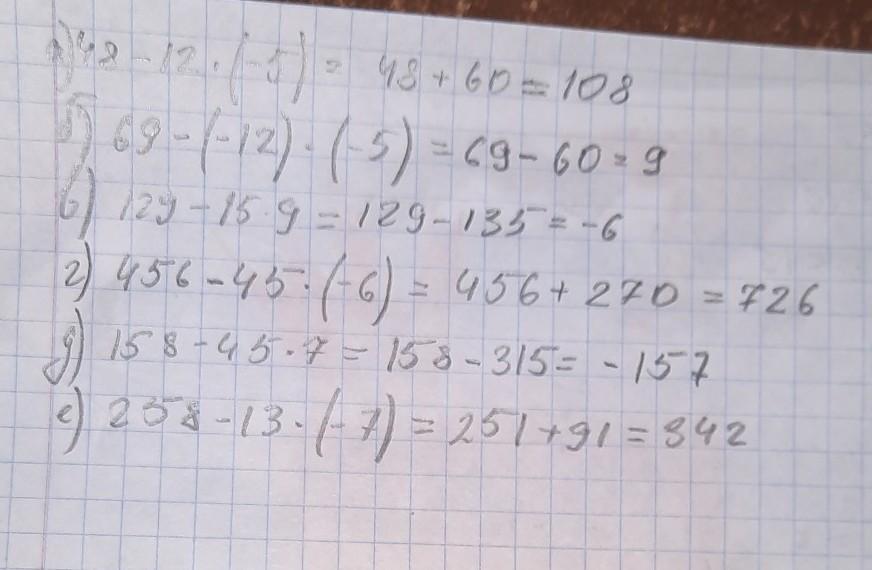 а) 48 - 12 · (-5) = 48 + 60 = 108
б) 69 - (-12) · (-5) = 69 - 60 = 9
в) 129 - 15 · 9 = 129 - 135 = -6
г) 456 - 45 · (-6) = 456 + 270 = 726
д) 158 - 45 · 7 = 158 - 315 = -157
е) 258 - 13 · (-7) = 251 + 91 = 342